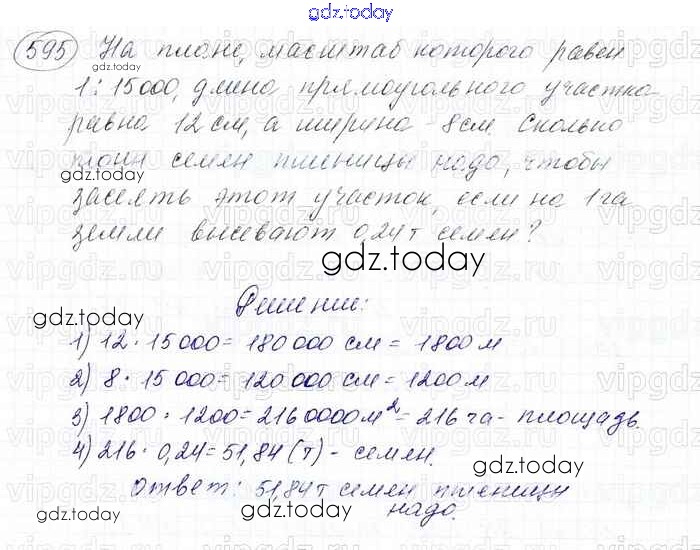 gdz.today
595 На плане, масштаб которого равен
gdz.today
1:15000, длина прямоугольного участка
равна 12 см, а ширина - 8 см. Сколько
тонн семен пшеницы надо, чтобы
gdz.today
засеять этот участок, если на 1 га
земли высевают 0,24 т семен?
gdz.today
Решение:
gdz.today
1) 12 · 15000 = 180 000 см = 1800 м
2) 8 · 15 000 = 120 000 см = 1200 м
3) 1800 · 1200 = 2160000 м² = 216 га - площадь.
4) 216 · 0,24 = 51,84 (т) - семен.
gdz.today
Ответ: 51,84 т семен пшеницы
надо.
gdz.today